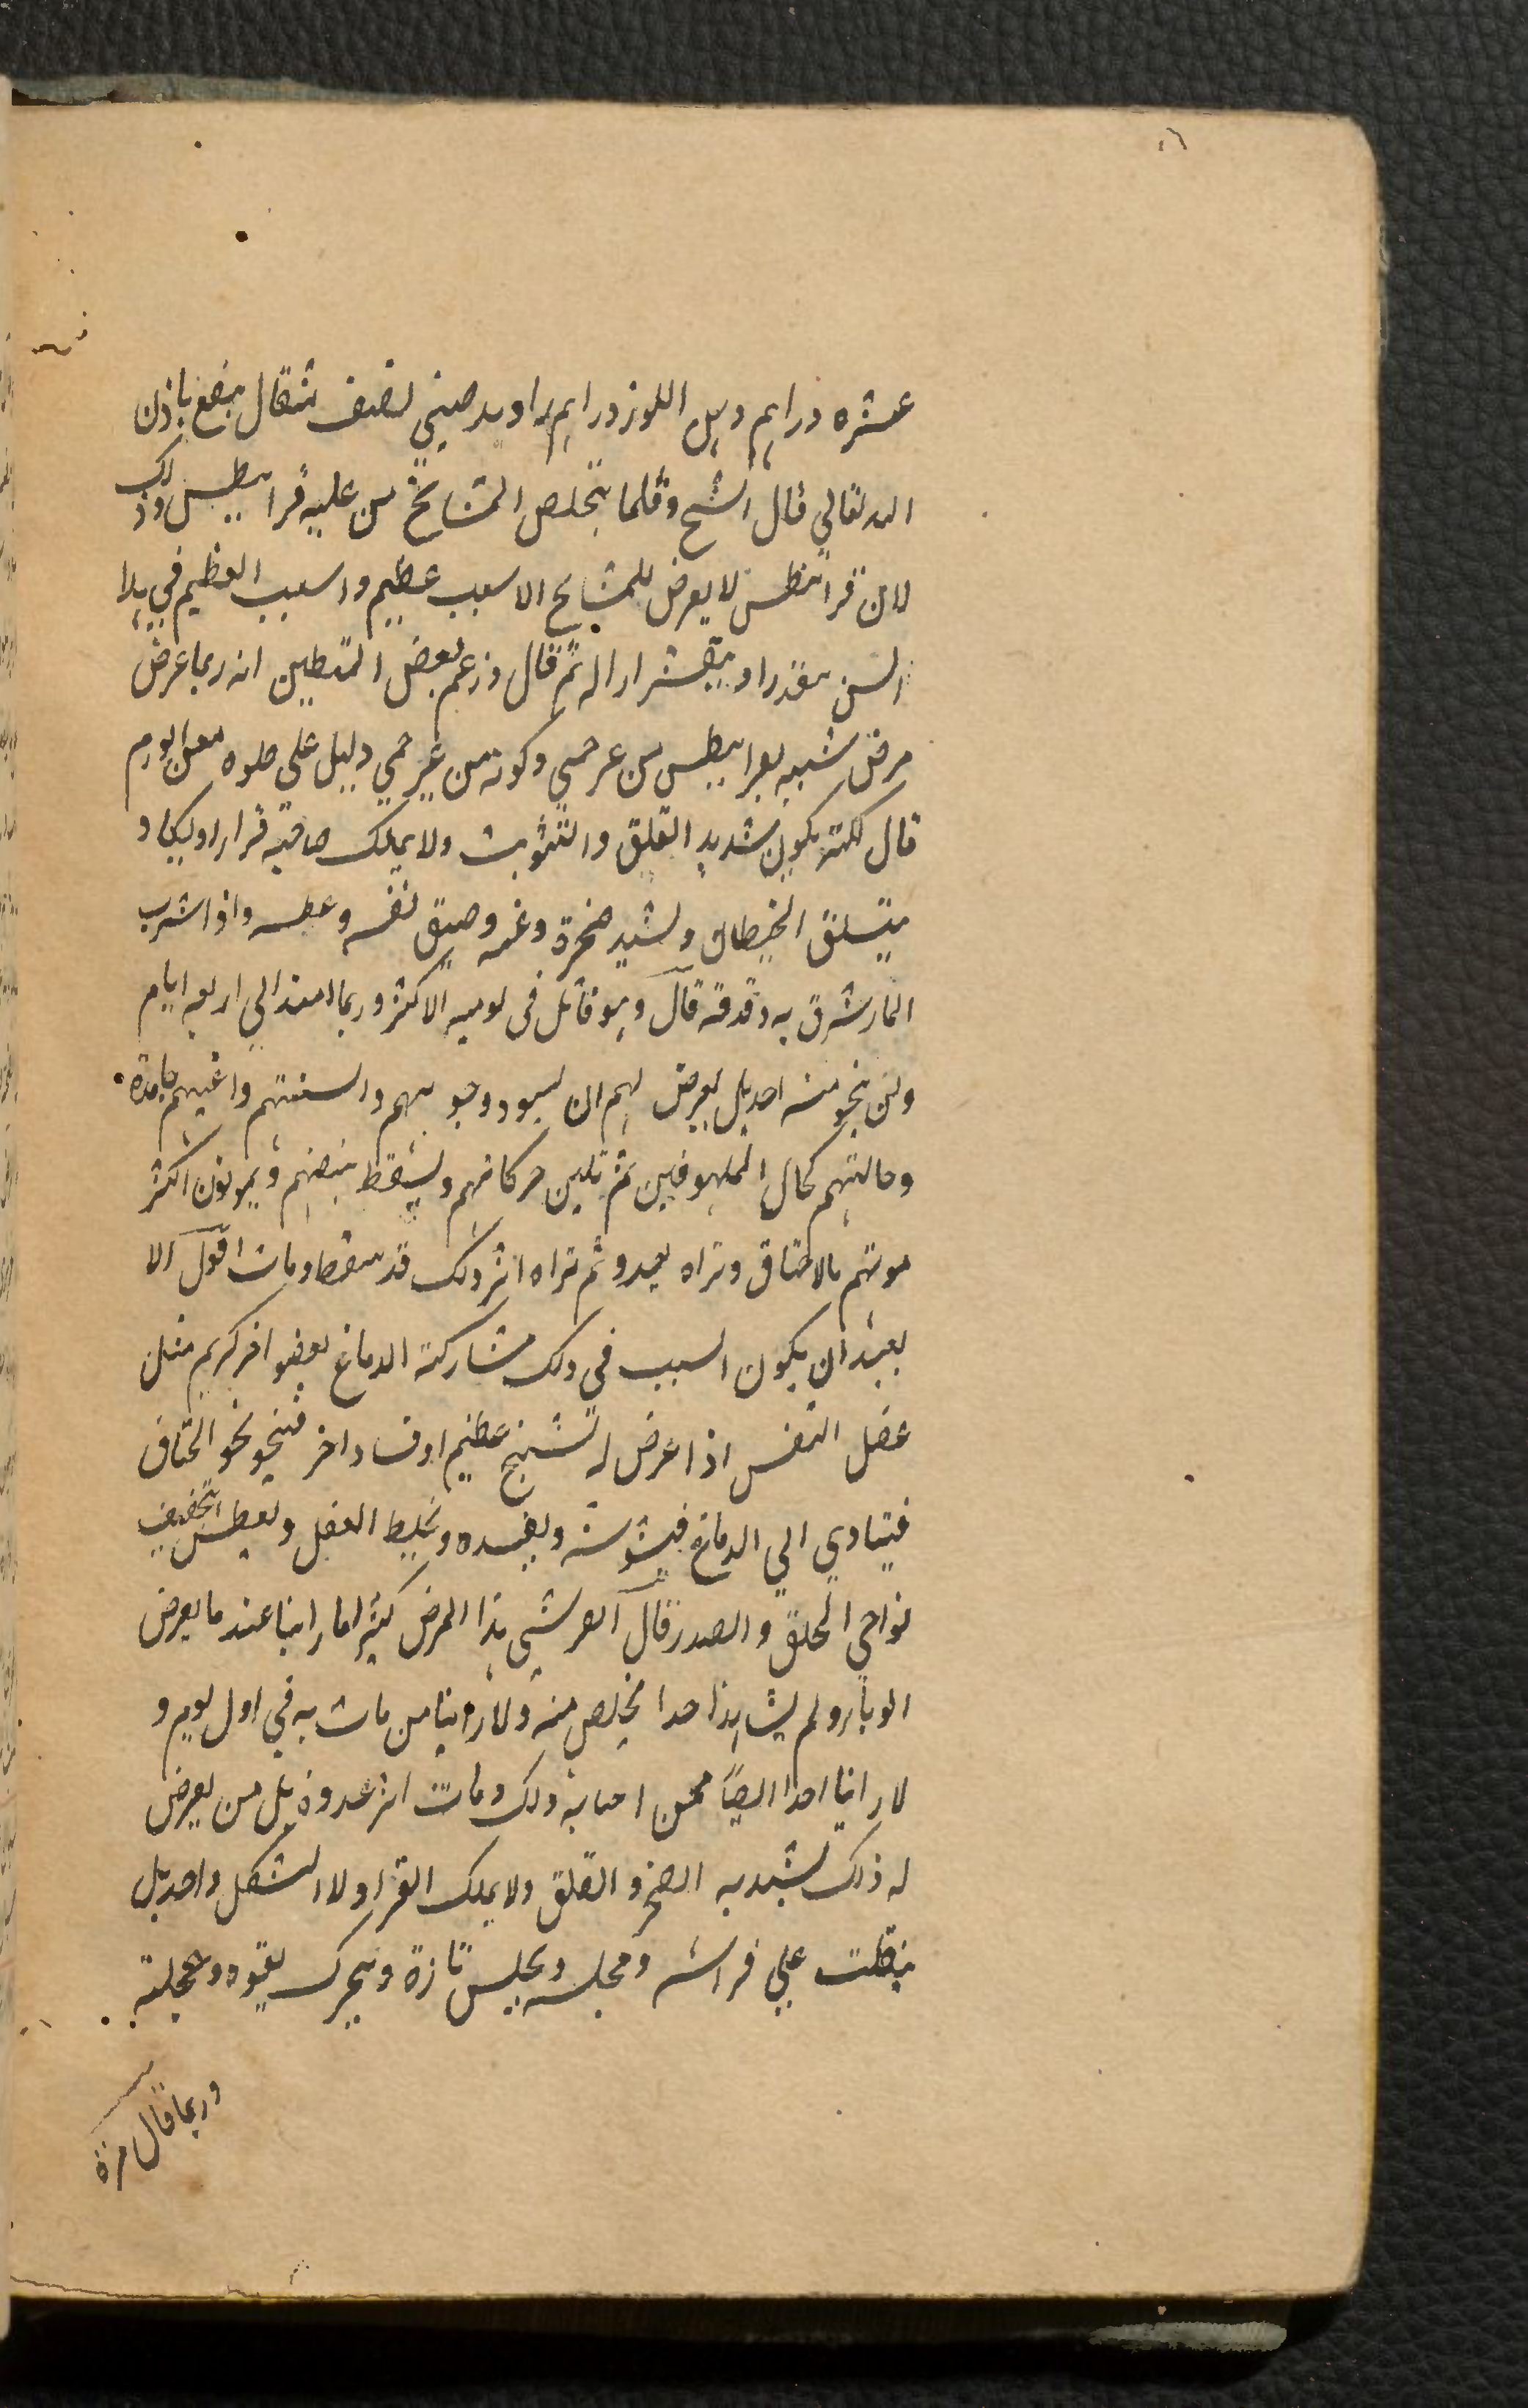 عشره دراهم دهن اللوز دراهم راوند صيني نصف مثقال ينفع باذن
الله تعالي قال الشيخ وقلما يتخلص المشايخ من علية قرانيطس وذلك
لان قرانيطس لا يعرض للمشايخ الا لسبب عظيم والسبب العظيم في هذا
السن مقدرا و ثم قال وزعم بعض المتطببين انه ربما عرض
مرض شبيه بقرانيطس من غير حمي وكونه من غير حمي دليل على خلوه من الورم
قال لكنه يكون شديد القلق والتثوب ولا يملك صاحبه قرارا ويكاد
يتسلق الحيطان ويشتد ضجره وغمه وضيق نفسه وعطشه واذا شرب
الماء شرق به وقذفه قال وهو قاتل فى يوميه الاكثر وربما امتد الي اربعه ايام
ولن ينجو منه احد بل يعرض لهم ان يسود وجوههم والسنتهم واعينهم جامدة
وحالتهم كحال الملهوفين ثم تلين حركاتهم ويسقط نبضهم ويموتون اكثر
موتهم بالاختناق وتراه يعدو ثم تراه اثر ذلك قد سقط ومات اقول الا
بعيد ان يكون السبب في ذلك مشاركة الدماغ لعضو اخر كريم مثل
عضل النفس اذا عرض له تشنج عظيم او فساد اخر فينحو نحو الخناق
فيتادي الي الدماغ فيشوشه ويفسده ويخلط العقل ويعطش لتجفيف
نواحي الحلق والصدر قال القرشي هذا المرض كثيرا ما راينا عند ما يعرض
الوباء ولم يشاهد احدا تخلص منه ولا راينا من مات به في اول يوم و
لا راينا احدا ايضا ممن اصابه ذلك ومات اثر عدوه بل من يعرض
له ذلك يشتد به الضجر والقلق ولا يملك القرار ولا الشكل واحد بل
ينقلب علي فراشه ومجلسه ويجلس تارة ويتحرك بقوه وعجلة
وربما قال مرة